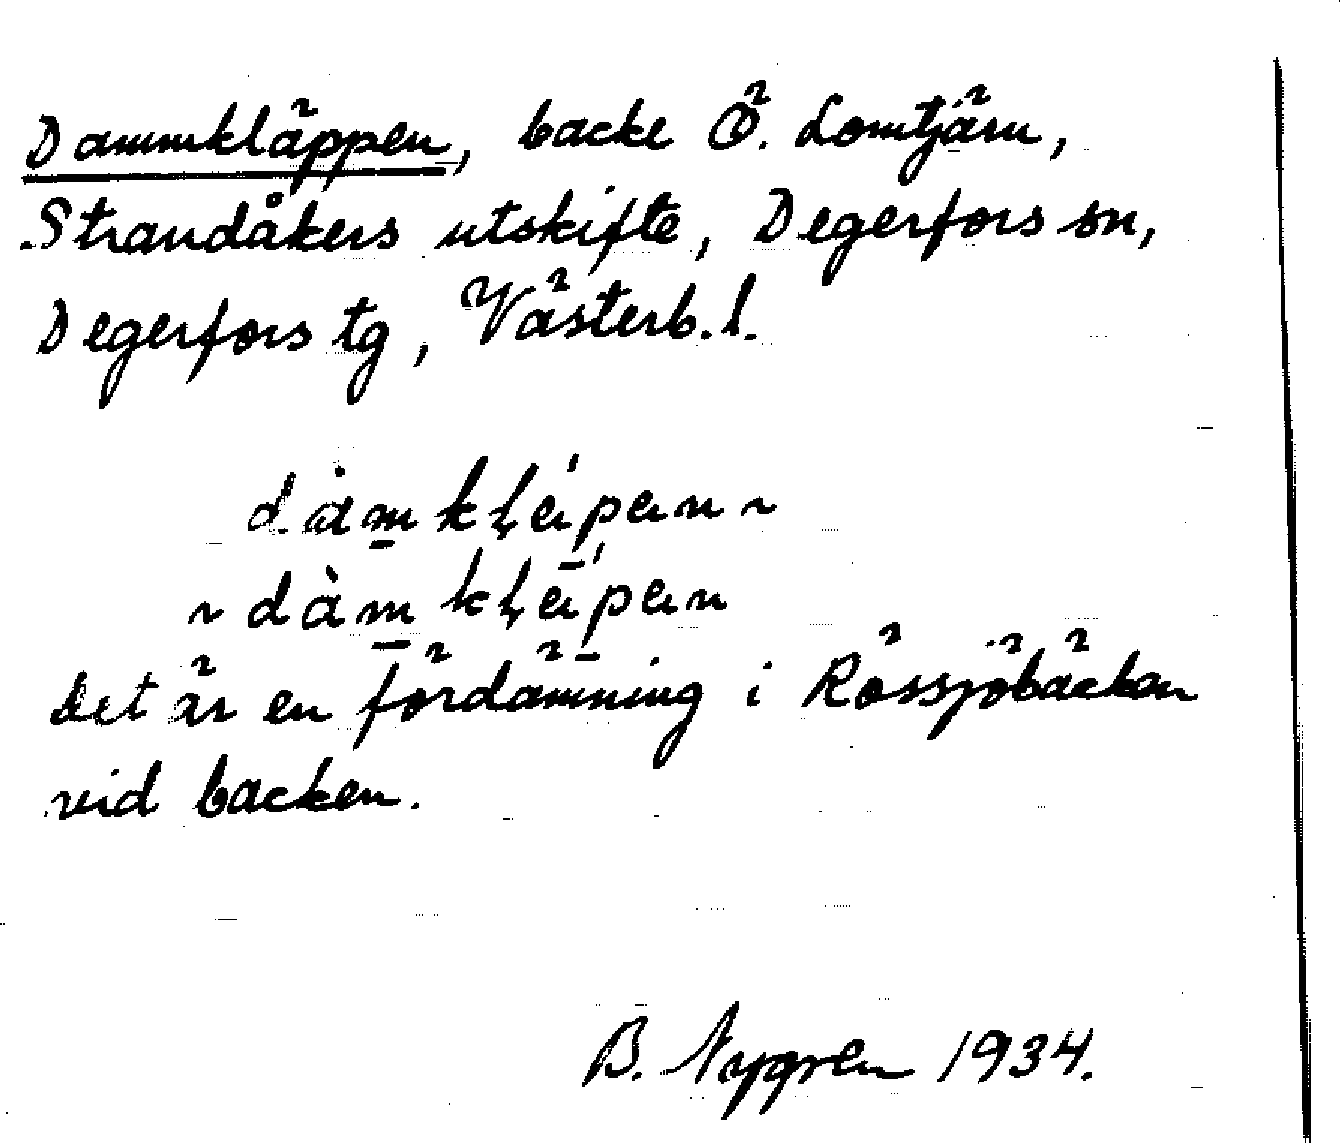 Dammkläppen, backe Ö. Lomtjärn,
Strandåkers utskifte, Degerfors sn,
Degerfors tg, Västerb. l.
dàmkḷépen ~
~ dàmkḷépen
Det är en fördämning i Rössjöbäcken
vid backen.
B. Nygren 1934.